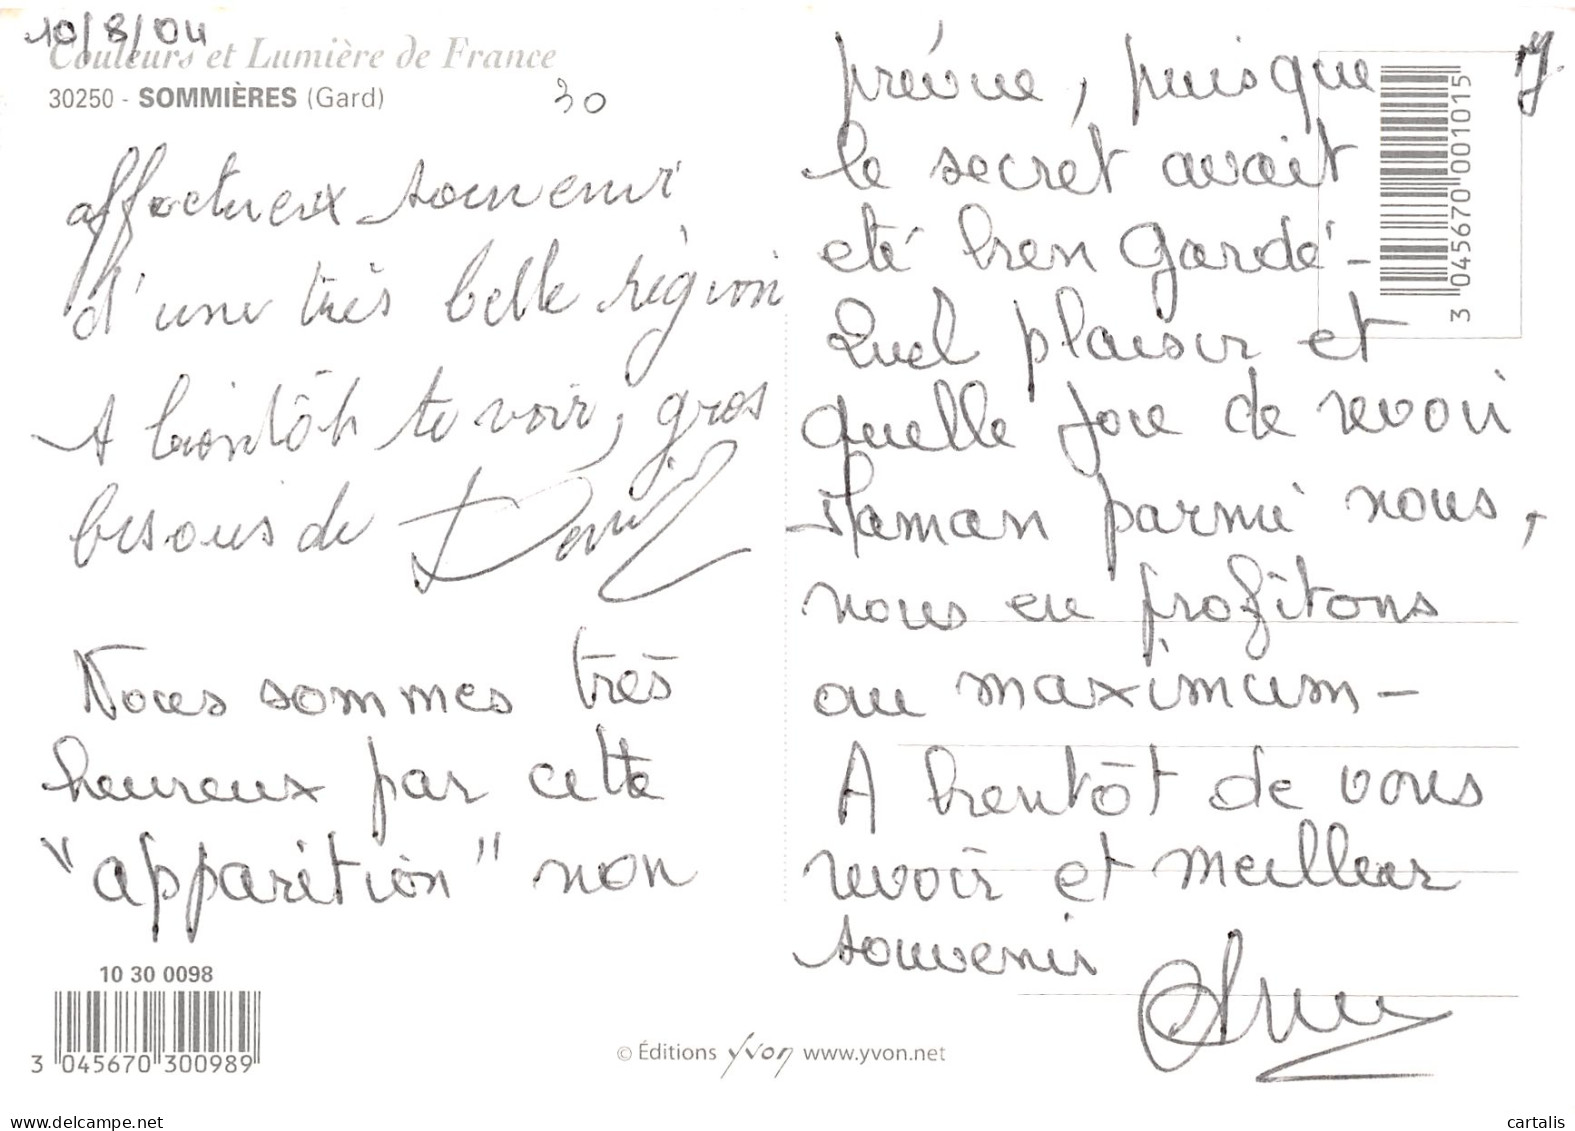 10/8/04
Couleurs et Lumière de France
30250 - SOMMIÈRES (Gard)
30
affectueux souvenir
d'une très belle région
A bientôt te voir, gros
besous de
Nous sommes très
heureux par cette
"apparition" non
10 30 0098
3 045670 300989
prévue, puisque
le secret avait
été bien gardé -
Quel plaisir et
quelle joie de revoir
Maman parmi nous,
nous en profitons
au maximum -
A bientôt de vous
revoir et meilleur
souvenir
3 045670 001015
© Éditions Yvon www.yvon.net
delcampe.net
cartalis